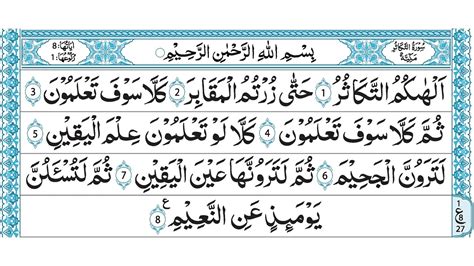 سُوْرَةُ التَّكَاثُرِ مَكِّيَّةٌ
بِسْمِ اللهِ الرَّحْمٰنِ الرَّحِيْمِ
اٰيَاتُهَا: 8
رُكُوْعُهَا: 1
اَلْهٰىكُمُ التَّكَاثُرُ 1 حَتّٰى زُرْتُمُ الْمَقَابِرَ 2 كَلَّا سَوْفَ تَعْلَمُوْنَ 3
ثُمَّ كَلَّا سَوْفَ تَعْلَمُوْنَ 4 كَلَّا لَوْ تَعْلَمُوْنَ عِلْمَ الْيَقِيْنِ 5
لَتَرَوُنَّ الْجَحِيْمَ 6 ثُمَّ لَتَرَوُنَّهَا عَيْنَ الْيَقِيْنِ 7 ثُمَّ لَتُسْـَٔلُنَّ
يَوْمَىِٕذٍ عَنِ النَّعِيْمِ 8 ع
1
ع
8
27